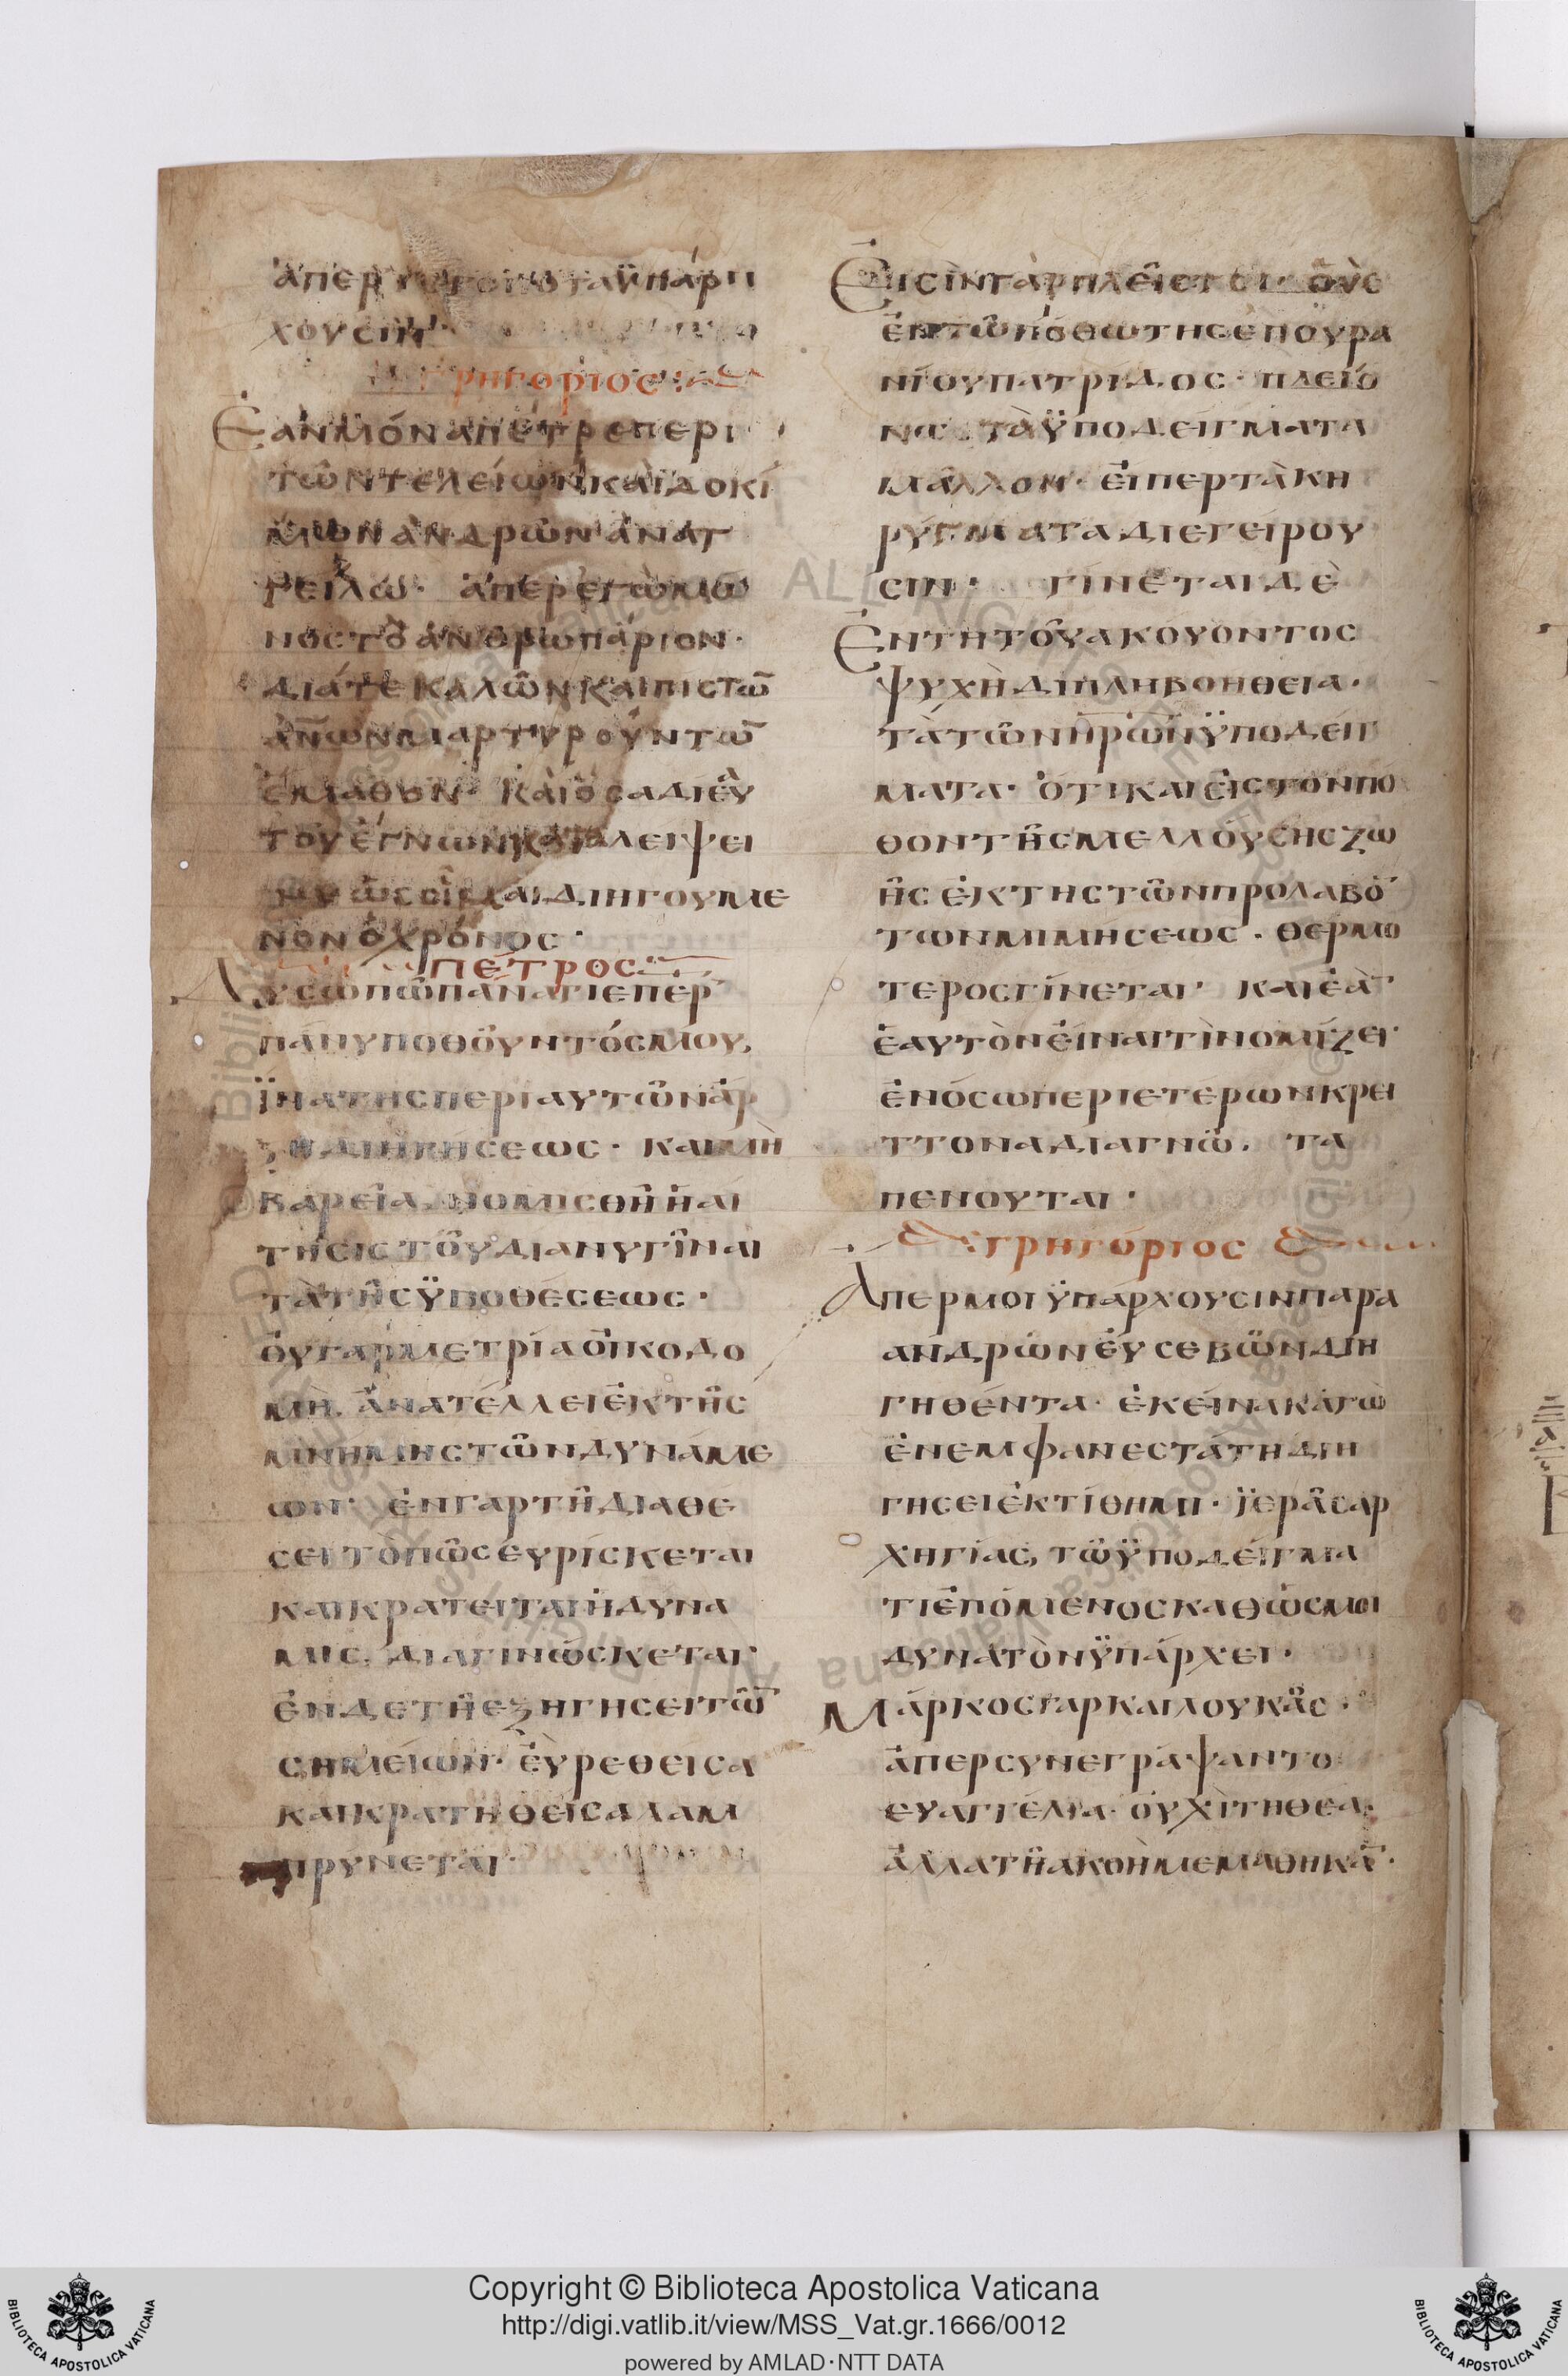 ἅπερ ὑπάρ
χουσιν·
ΓΡΗΓΟΡΙΟΣ
Ἐὰν μόναπέτρεπερὶ
τῶντελείωνκαὶδοκί
μωνἀνδρῶνἀναγ
γείλω· ἅπερἐγὼμό
νοςτὸἀνθρωπάριον·
διάτεκαλῶνκαὶπιστῶ̅
ἀ̅ν̅ω̅νμαρτυρούντω̅
ἔμαθον· καὶὅσαδιἑαυ
τοῦἔγνωνκαταλείψει
διηγούμε
νονὁχρόνος·
ΠΕΤΡΟΣ
Λυσωπῶπανάγιεπερ
πάνυποθοῦντόςμου,
ἵνατῆςπεριαυτῶνἄρ
ξηδιηγήσεως· καὶμὴ
βαρεῖανομισθῆἡαἴ
τησιςτοῦδιανυγῆναι
τὰτῆςὑποθέσεως·
οὐγὰρμετρίαοἰκοδο
μὴ. ἀνατέλλειἐκτῆς
μνήμηςτῶνδυνάμε
ων· ἐνγὰρτῆδιαθέ
σειτὸπῶςεὑρίσκεται
καικρατεῖταιἡδύνα
μις, διαγινώσκεται·
ἐνδετῆεξηγήσειτῶ̅
σημείων· ἐὑρεθεῖσα
καικρατηθεῖσαλαμ
πρύνεται·
Εἰσὶνγὰρπλεῖστοι· οὓς
ἐντῶπόθωτῆςἐπουρα
νίουπατρίδος· πλείο
νωςτὰὑποδείγματα
μᾶλλον· εἴπερτὰκη
ρύγματαδιεγείρου
σιν· γίνεταιδὲ
Ἐντῆτοῦακούοντος
ψυχῆδιπλῆβοήθεια·
τὰτῶνπ̅ρ̅ω̅νὑποδείγ
ματα· ὅτικαιεἰςτὸνπό
θοντῆςμελλούσηςζω
ῆςἐκτηςτῶνπρολαβό̅
τωνμιμήσεως· θερμό
τεροςγίνεται· καιἐὰ̅
ἑαυτὸνεἶναιτὶνομίζει·
ἐνόσωπεριετέρωνκρεί
ττοναδιαγνῶ. τα
πεινοῦται·
ΓΡΗΓΟΡΙΟΣ
Ἅπερμοιὑπάρχουσινπαρα
ανδρῶνεὐσεβῶνδιη
γηθέντα· ἐκεῖνακἀγὼ
ἐνεμφανεστάτηδιη
γήσειἐκτίθημι· ἱερᾶςἀρ
χηγίας, τῶὑποδείγμα
τιἑπόμενοςκαθώςμοι
δυνατὸνὑπάρχει·
Μάρκοςγαρκαιλουκᾶς·
ἅπερσυνεγράψαντο
ευαγγέλια· οὐχὶτηθέα·
ἀλλατῆἀκοῆμεμαθήκα̅·
ALL RIGHTS RESERVED
© Biblioteca Apostolica Vaticana
Copyright © Biblioteca Apostolica Vaticana
http://digi.vatlib.it/view/MSS_Vat.gr.1666/0012
powered by AMLAD · NTT DATA
BIBLIOTECA APOSTOLICA VATICANA
BIBLIOTECA APOSTOLICA VATICANA